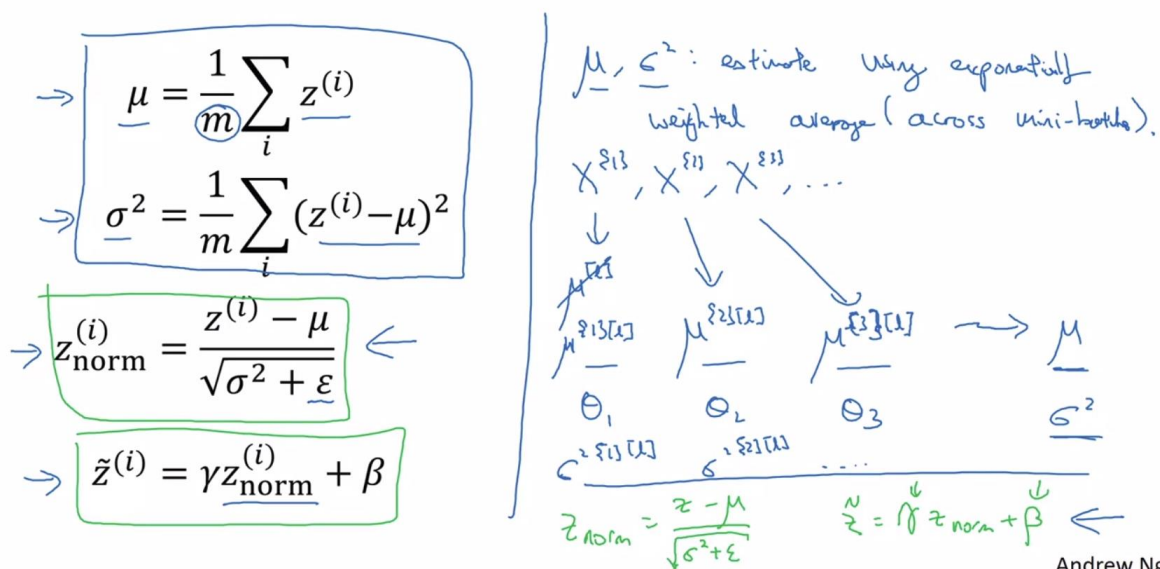 μ = 1/m ∑_i z^(i)
σ² = 1/m ∑_i (z^(i)−μ)²
z_norm^(i) = (z^(i) − μ)/√(σ² + ε)
z̃^(i) = γz_norm^(i) + β
μ, σ²: estimate using exponentially
weighted average (across mini-batches).
X^{1}, X^{2}, X^{3}, ...
μ^[l]
μ^{1}[l] μ^{2}[l] μ^{3}[l] → μ
θ₁ θ₂ θ₃ σ²
σ²^{1}[l] σ²^{2}[l] ....
z_norm = (z − μ)/√(σ²+ε) z̃ = γ z_norm + β
Andrew Ng